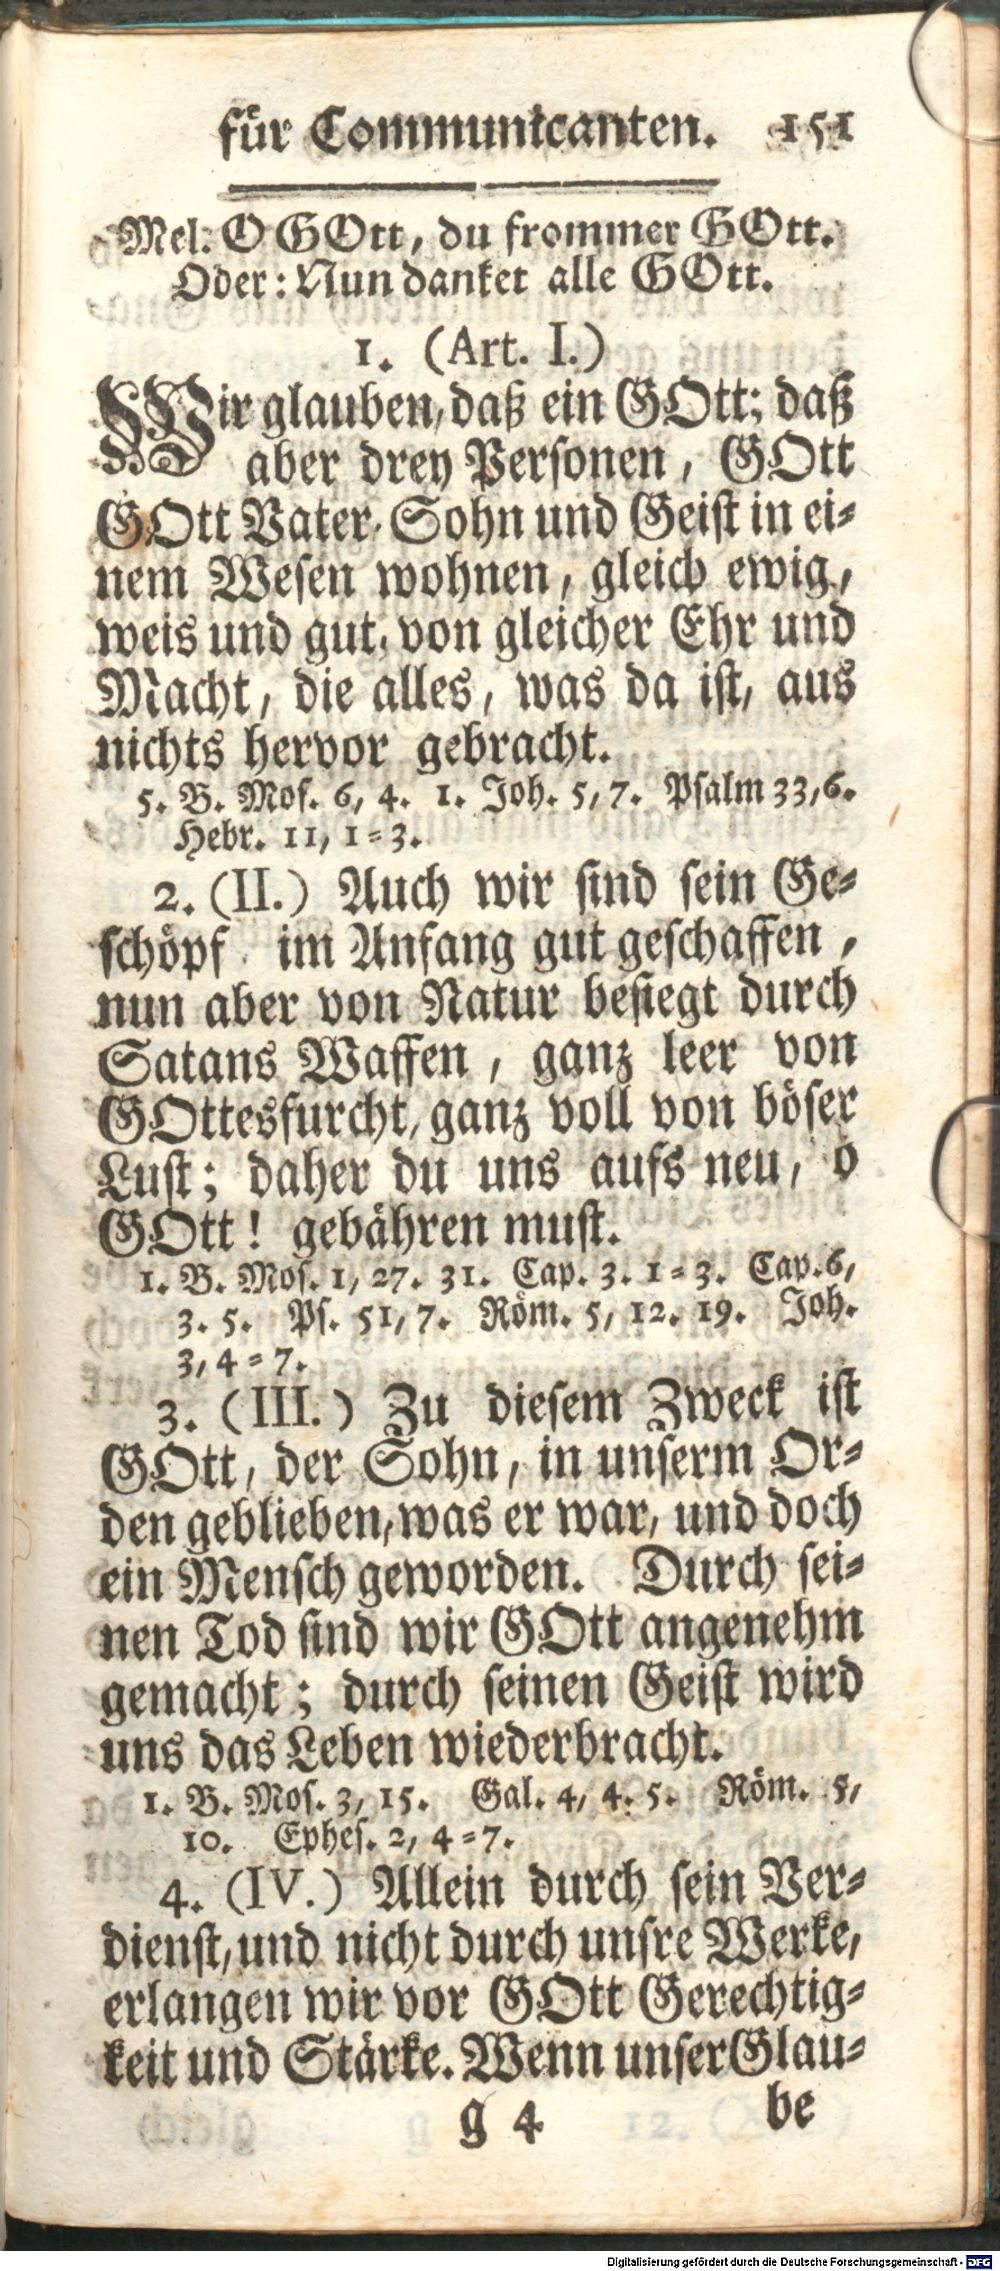 für Communicanten. 151
Mel: O GOtt, du frommer GOtt.
Oder: Nun danket alle GOtt.
1. (Art. I.)
Wir glauben, daß ein GOtt; daß
aber drey Personen, GOtt
GOtt Vater, Sohn und Geist in ei-
nem Wesen wohnen, gleich ewig,
weis und gut, von gleicher Ehr und
Macht, die alles, was da ist, aus
nichts hervor gebracht.
5. B. Mos. 6, 4. 1. Joh. 5, 7. Psalm 33, 6.
Hebr. 11, 1-3.
2. (II.) Auch wir sind sein Ge-
schöpf im Anfang gut geschaffen,
nun aber von Natur besiegt durch
Satans Waffen, ganz leer von
GOttesfurcht, ganz voll von böser
Lust; daher du uns aufs neu, o
GOtt! gebähren must.
1. B. Mos. 1, 27. 31. Cap. 3. 1-3. Cap. 6,
3. 5. Ps. 51, 7. Röm. 5, 12. 19. Joh.
3, 4-7.
3. (III.) Zu diesem Zweck ist
GOtt, der Sohn, in unserm Or-
den geblieben, was er war, und doch
ein Mensch geworden. Durch sei-
nen Tod sind wir GOtt angenehm
gemacht; durch seinen Geist wird
uns das Leben wiederbracht.
1. B. Mos. 3, 15. Gal. 4, 4. 5. Röm. 5,
10. Ephes. 2, 4-7.
4. (IV.) Allein durch sein Ver-
dienst, und nicht durch unsre Werke,
erlangen wir vor GOtt Gerechtig-
keit und Stärke. Wenn unser Glau-
g 4 be
Digitalisierung gefördert durch die Deutsche Forschungsgemeinschaft - DFG